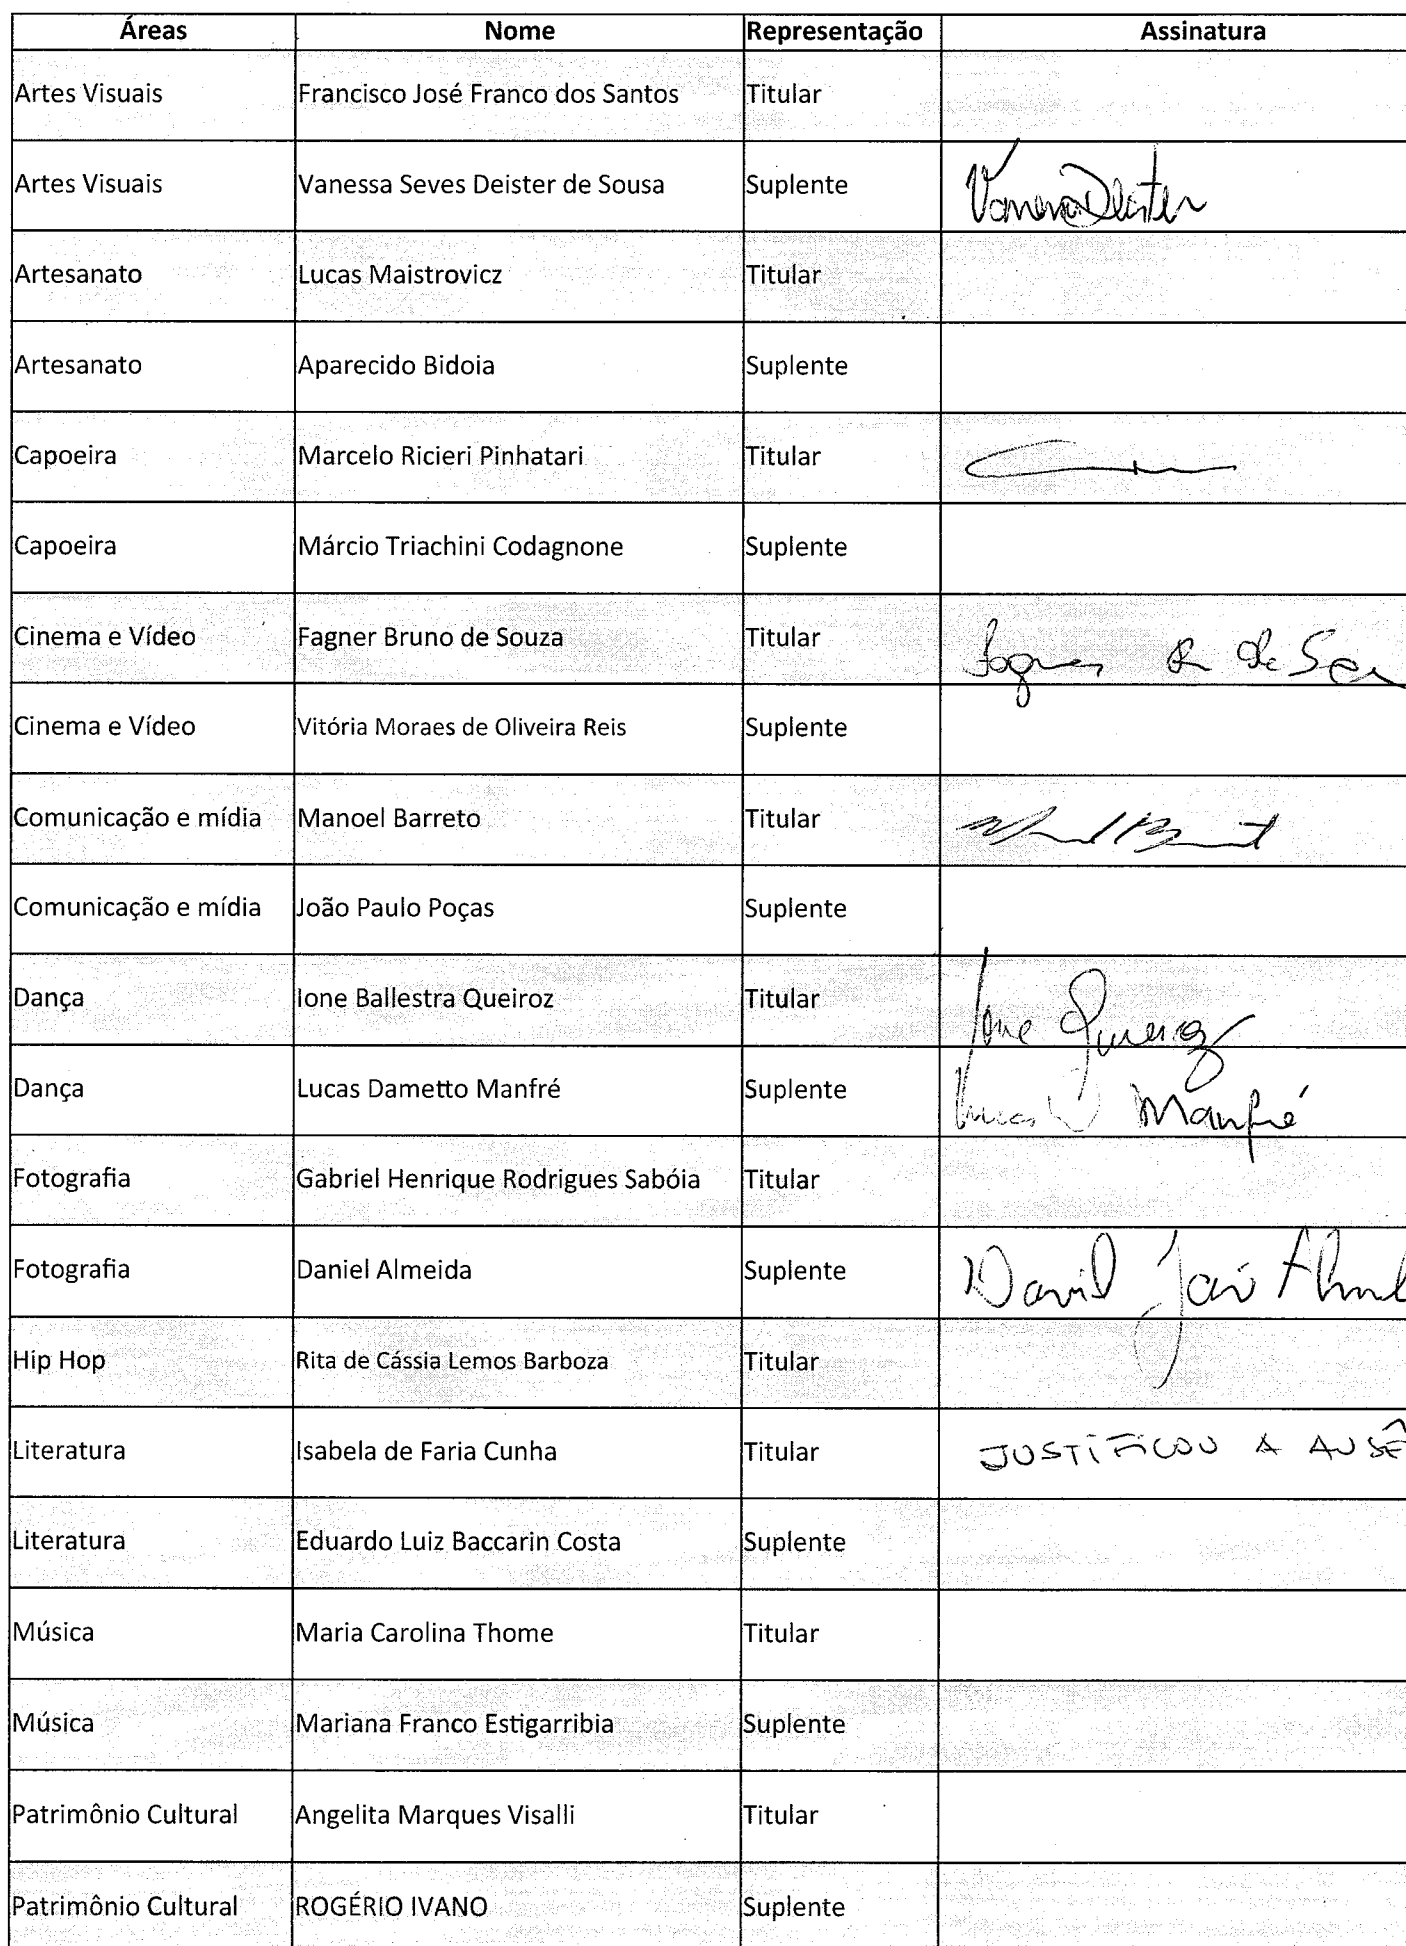 Áreas Nome Representação Assinatura
Artes Visuais Francisco José Franco dos Santos Titular
Artes Visuais Vanessa Seves Deister de Sousa Suplente Vanessa Deister
Artesanato Lucas Maistrovicz Titular
Artesanato Aparecido Bidoia Suplente
Capoeira Marcelo Ricieri Pinhatari Titular
Capoeira Márcio Triachini Codagnone Suplente
Cinema e Vídeo Fagner Bruno de Souza Titular Fagner B de
Cinema e Vídeo Vitória Moraes de Oliveira Reis Suplente
Comunicação e mídia Manoel Barreto Titular
Comunicação e mídia João Paulo Poças Suplente
Dança Ione Ballestra Queiroz Titular Ione Queiroz
Dança Lucas Dametto Manfré Suplente Lucas D Manfré
Fotografia Gabriel Henrique Rodrigues Sabóia Titular
Fotografia Daniel Almeida Suplente
Hip Hop Rita de Cássia Lemos Barboza Titular
Literatura Isabela de Faria Cunha Titular JUSTIFICOU A AUSÊ
Literatura Eduardo Luiz Baccarin Costa Suplente
Música Maria Carolina Thome Titular
Música Mariana Franco Estigarribia Suplente
Patrimônio Cultural Angelita Marques Visalli Titular
Patrimônio Cultural ROGÉRIO IVANO Suplente